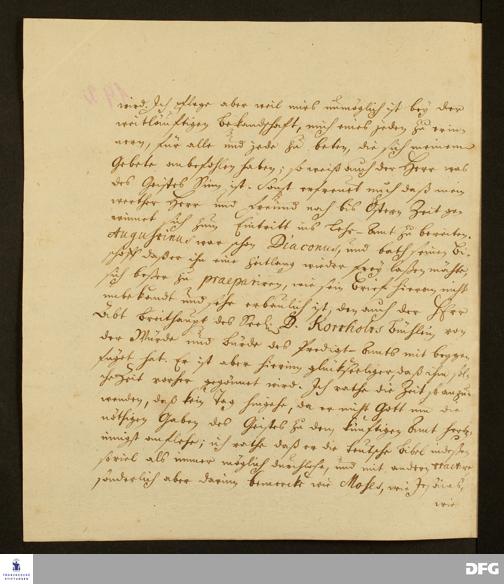 wird. Ich pflege aber weil mirs unmöglich ist bey der
weitläuftigen Bekandschaft, mich eines jeden zu erin-
nern, für alle und jede zu beten, die sich meinem
Gebete anbefohlen haben; so weiß auch der Herr was
des Geistes Sinn ist. Sonst erfreuet mich daß mein
werther Herr und Freund noch bis Ostern Zeit ge-
winnet sich zum Eintritt ins Lehr-Amt zu bereiten.
Augustinus war schon Diaconus, und bath seinen Bi-
schoff daß er ihn eine Zeitlang wieder frey lassen möchte,
sich besser zu praepariren, wie sein Brief hiervon nicht
unbekandt und sehr erbaulich ist, den auch der Herr
Abt Breithaupt des Seel. D. Kortholts Büchlein, von
der Würde und Bürde des Predigt-Amts mit beyge-
füget hat. Er ist aber hierin glückseeliger, daß ihm sol-
che Zeit vorher gegönnet wird. Ich rathe die Zeit so anzu-
wenden, daß kein Tag hingehe, da er nicht Gott um die
nöthigen Gaben des Geistes zu dem künftigen Amt hertz-
innigst anflehe; ich rathe daß er die teutsche Bibel indessen
so viel als immer möglich durchlese, und mit andern tractire
sonderlich aber darin bemercke wie Moses, wie Jesaias,
wie
FRANCKESCHE
STIFTUNGEN
DFG